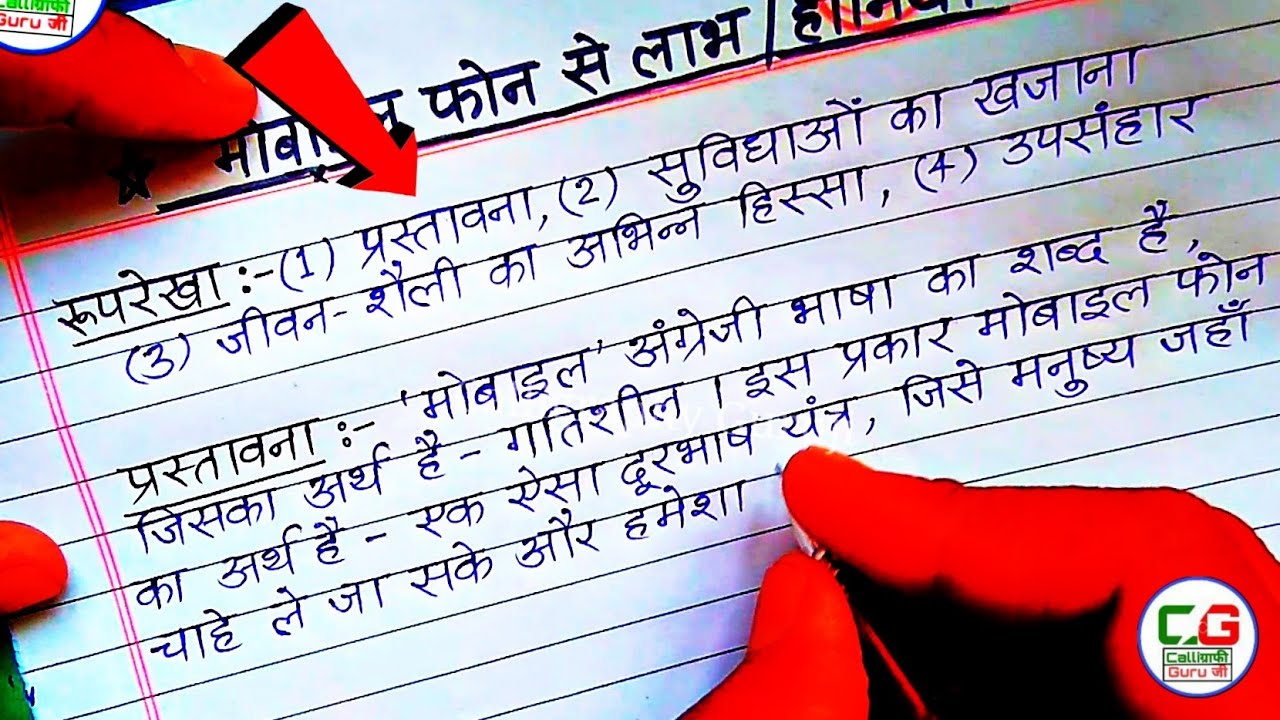 Calliग्राफी
Guru जी
मोबाइल फोन से लाभ/हानियाँ
रूपरेखा :-(1) प्रस्तावना, (2) सुविधाओं का खजाना
(3) जीवन-शैली का अभिन्न हिस्सा, (4) उपसंहार
प्रस्तावना :- 'मोबाइल' अंग्रेजी भाषा का शब्द है,
जिसका अर्थ है - गतिशील । इस प्रकार मोबाइल फोन
का अर्थ है - एक ऐसा दूरभाष यंत्र, जिसे मनुष्य जहाँ
चाहे ले जा सके और हमेशा
CG
Calliग्राफी
Guru जी